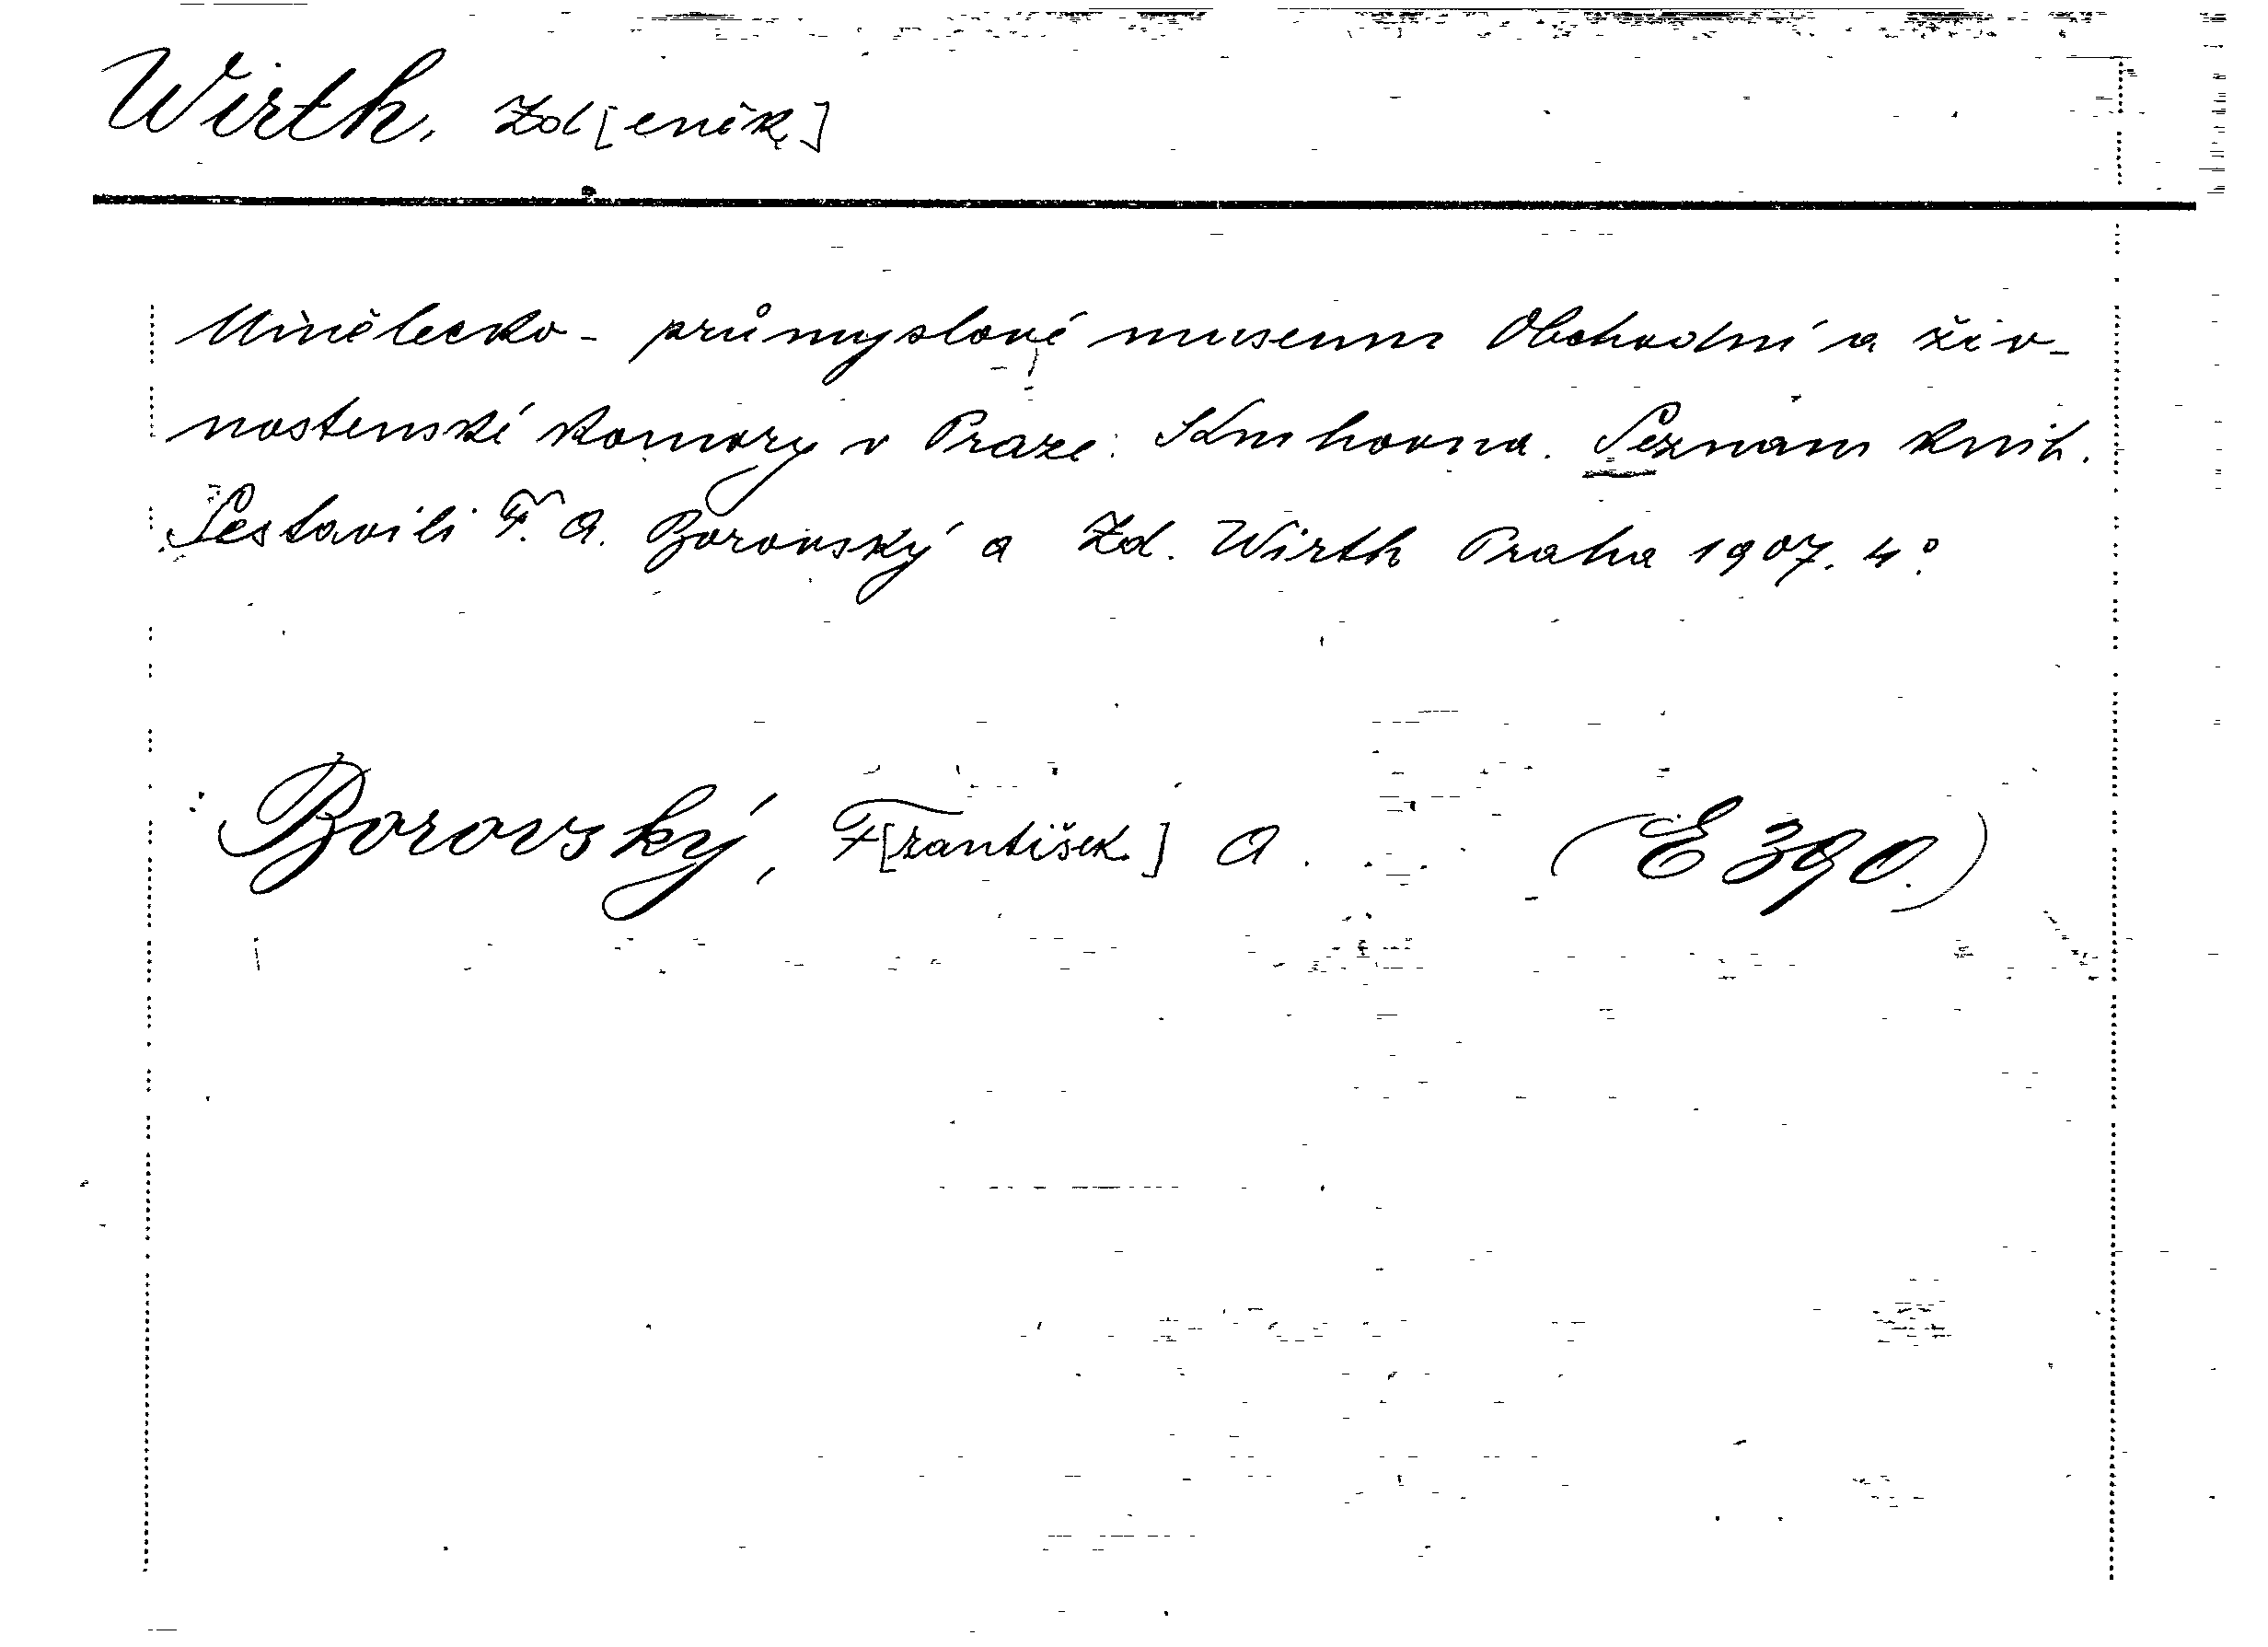 Wirth, Zd[eněk]
Umělecko - průmyslové museum Obchodní a živ-
nostenské komory v Praze: Knihovna. Seznam knih.
Sestavili F. A. Borovský a Zd. Wirth Praha 1907. 4°.
Borovský, F[rantišek] A. (E 390.)